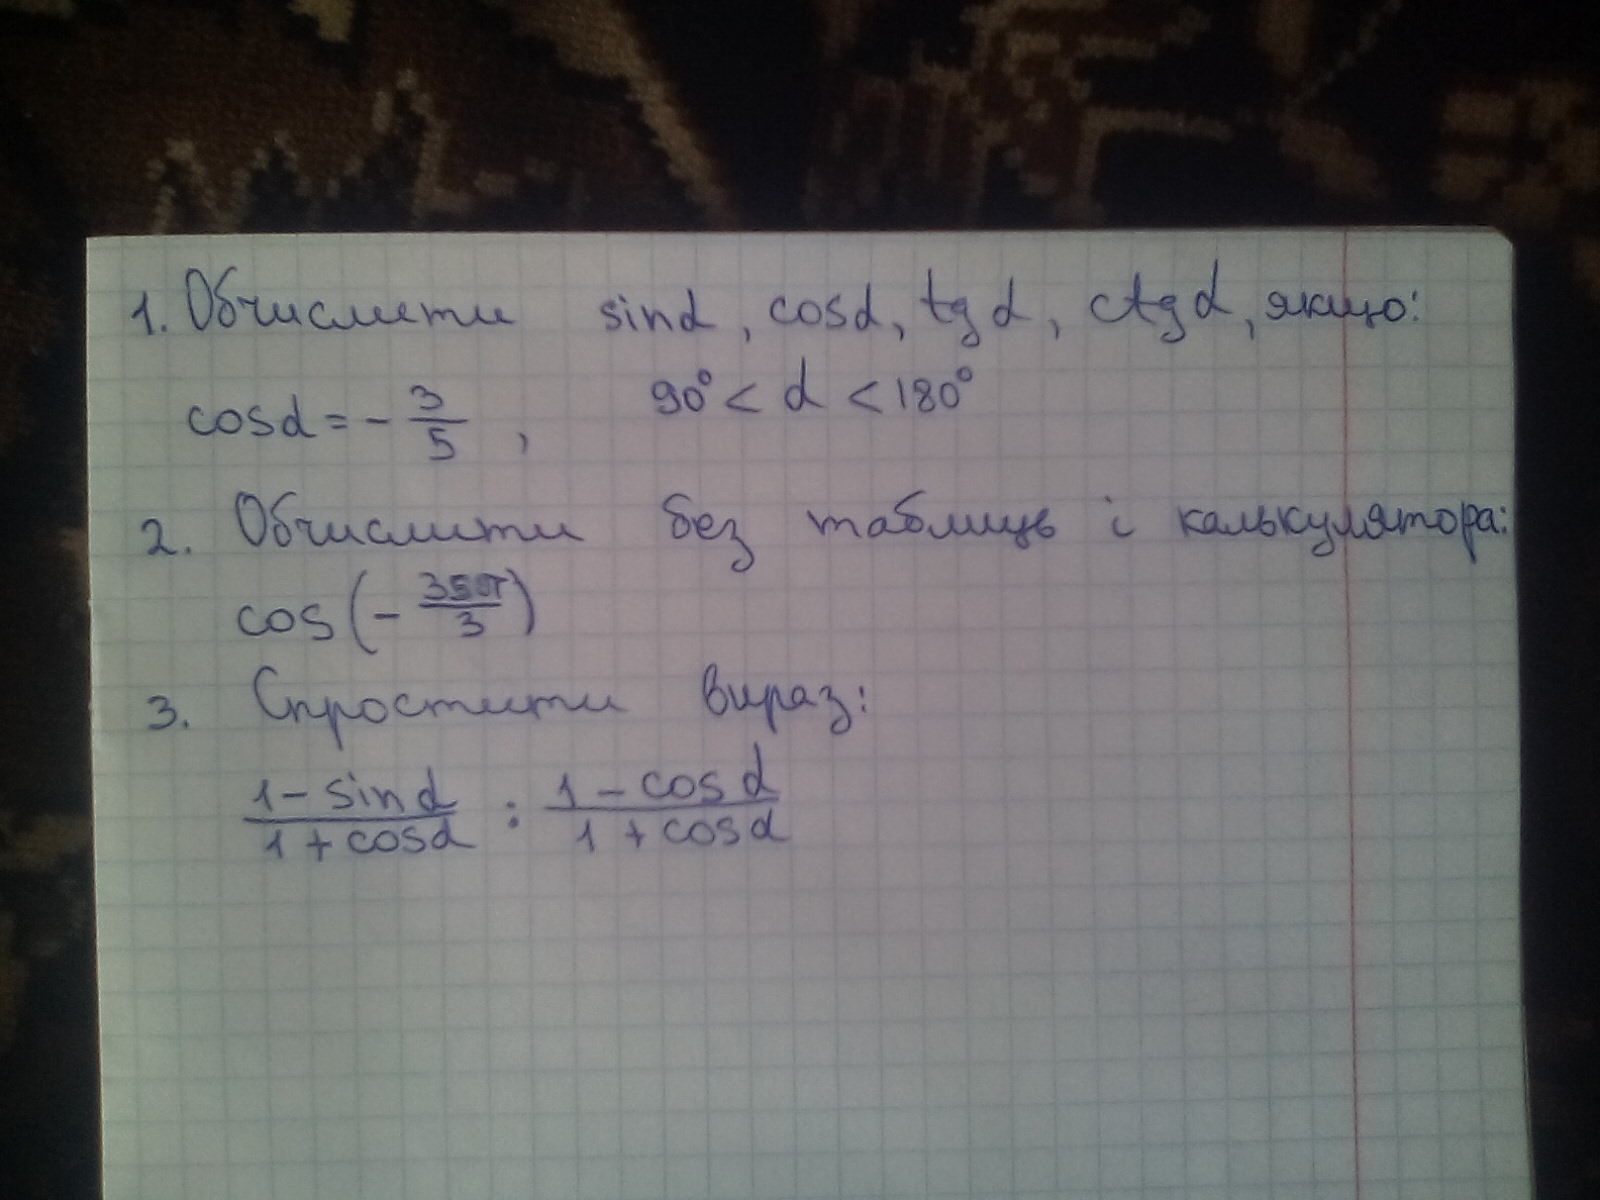 1. Обчислити sinα, cosα, tgα, ctgα, якщо:
cosα = - 3/5 , 90° < α < 180°
2. Обчислити без таблиць і калькулятора:
cos(- 35π/3)
3. Спростити вираз:
1 - sinα / 1 + cosα : 1 - cosα / 1 + cosα